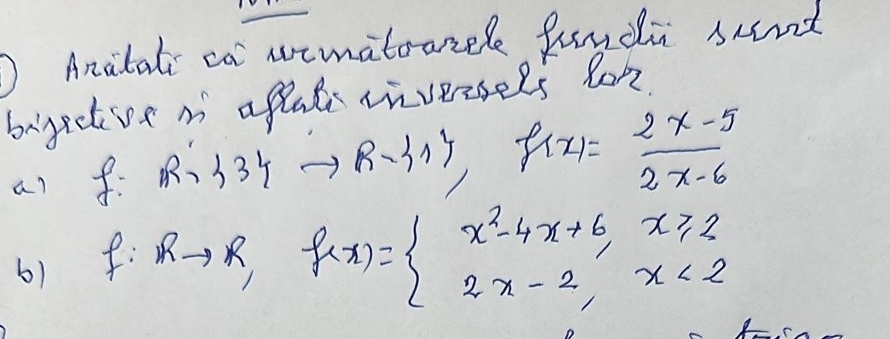 1) Arătați că următoarele funcții sunt
bijective și aflați inversele lor.
a) f: R\{3} → R\{1}, f(x) = (2x-5)/(2x-6)
b) f: R → R, f(x) = { x²-4x+6, x ≥ 2
2x-2, x < 2